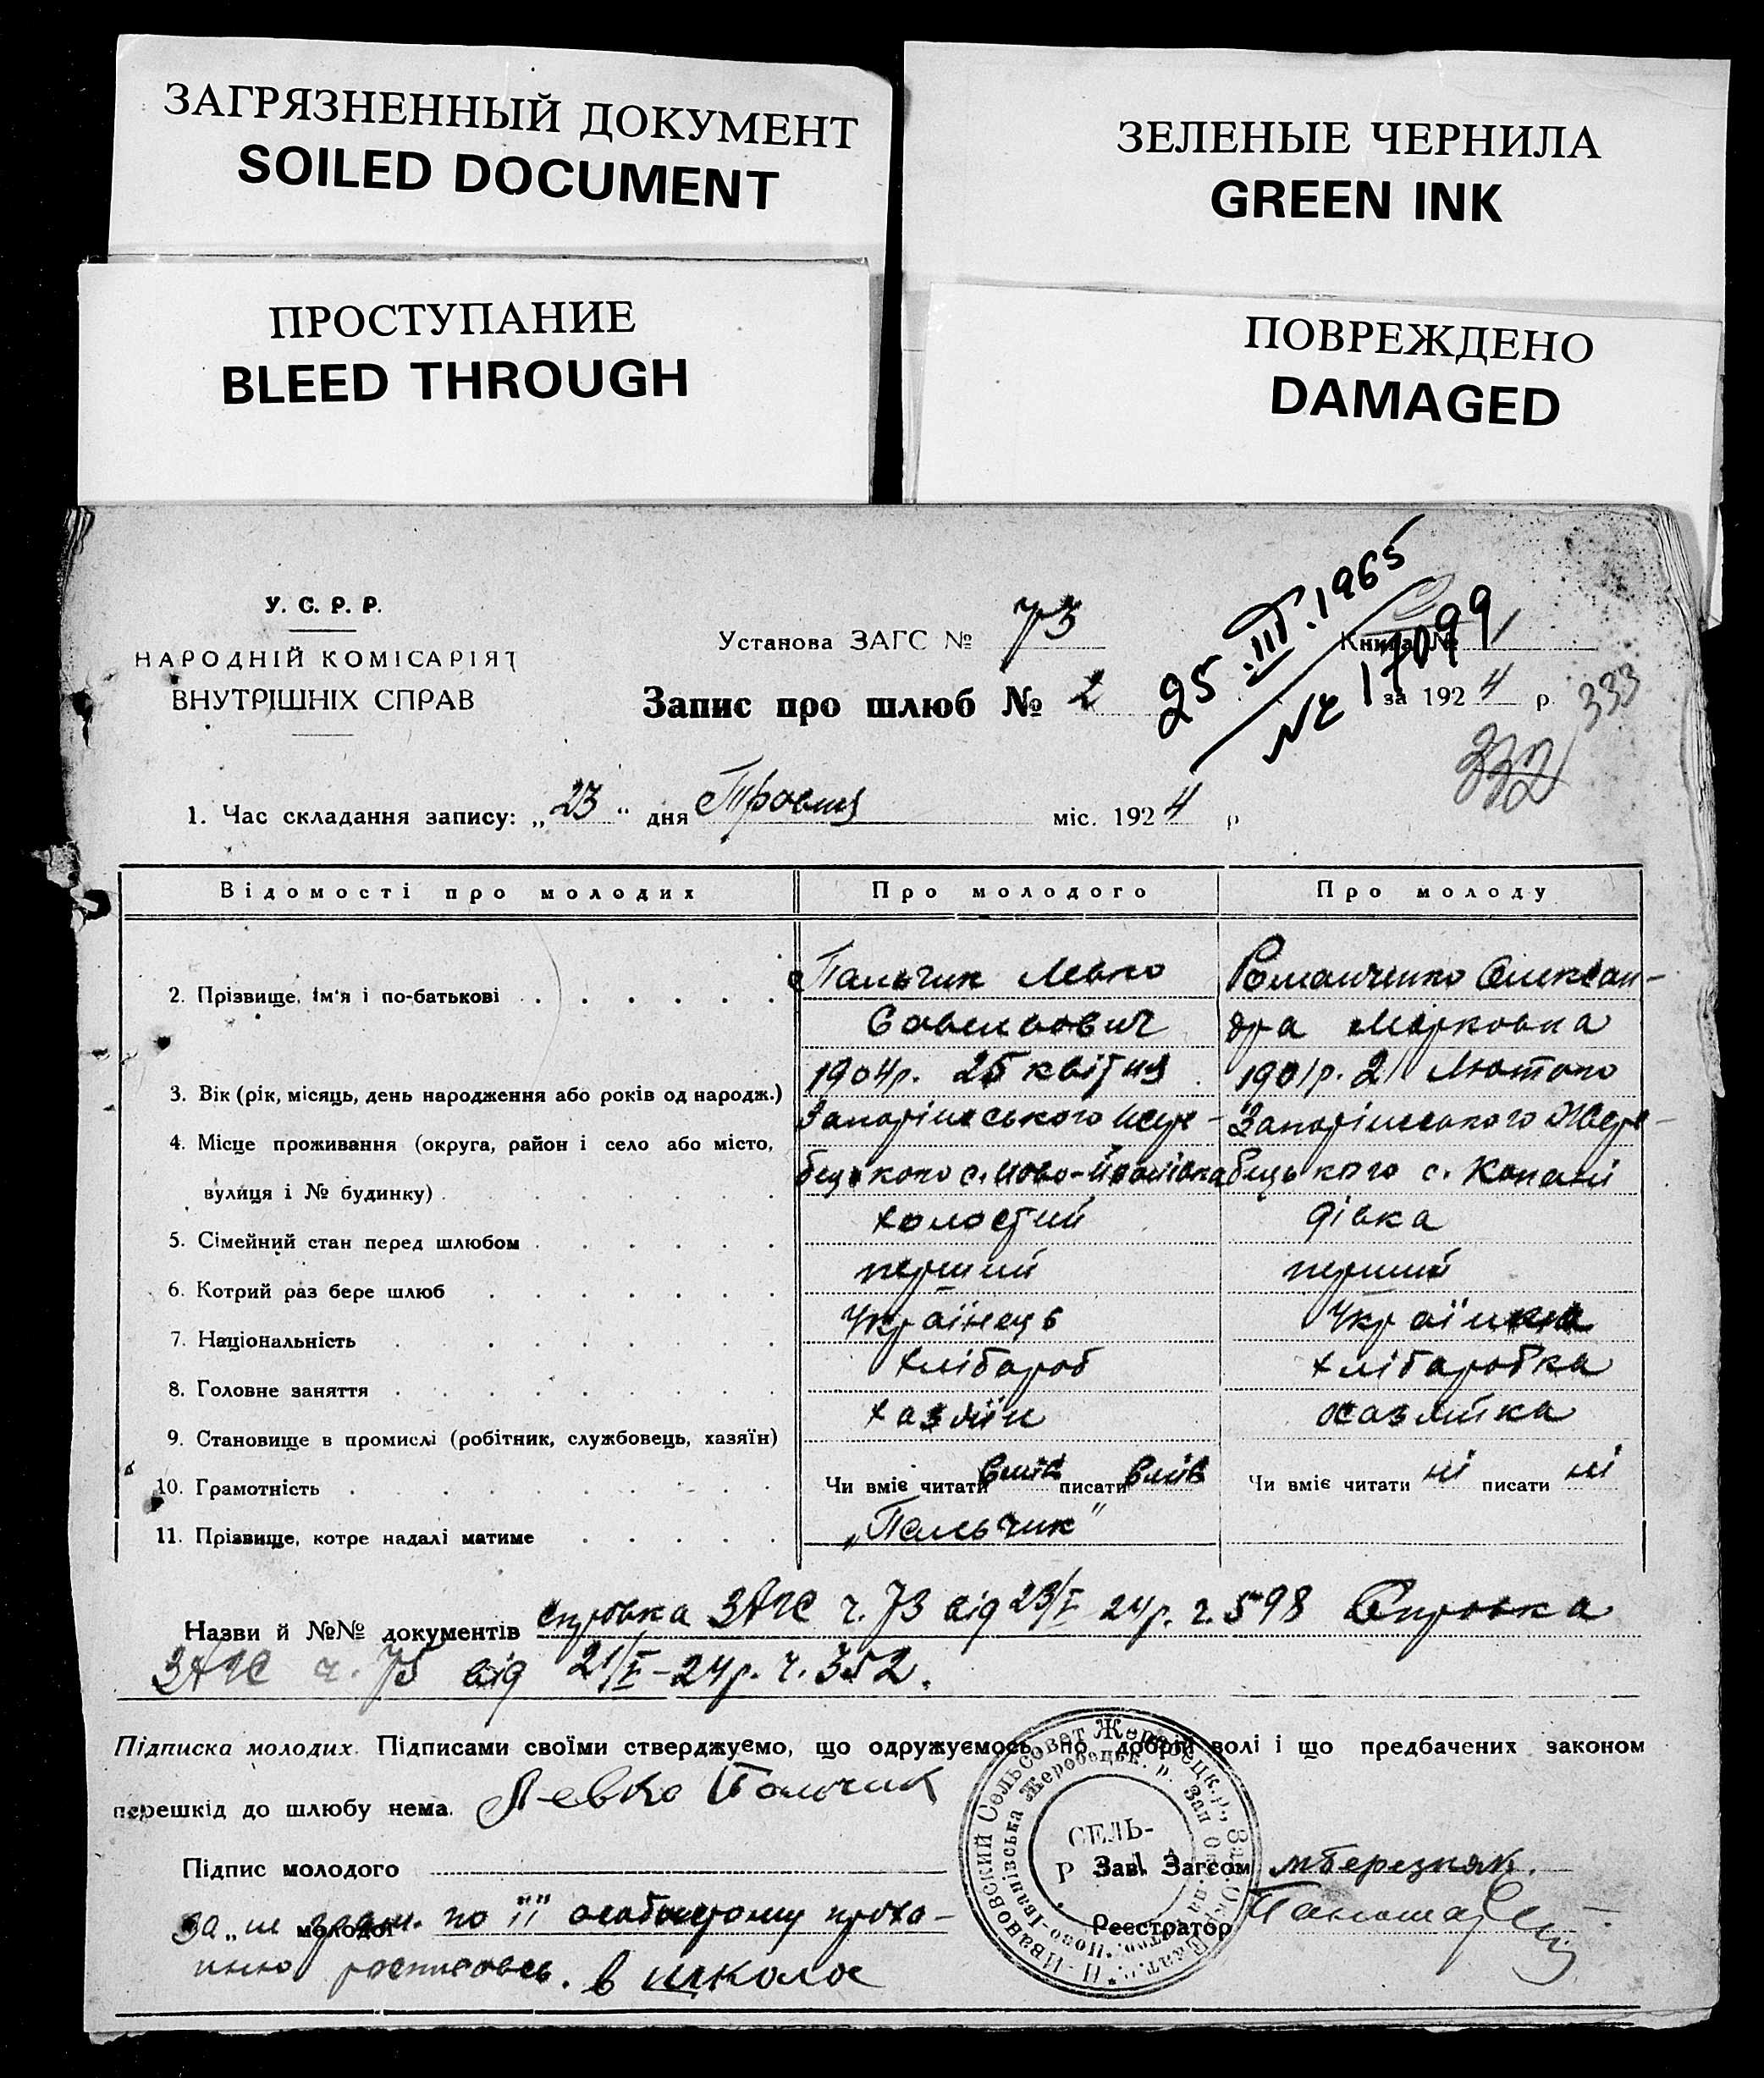 ЗАГРЯЗНЕННЫЙ ДОКУМЕНТ
SOILED DOCUMENT
ЗЕЛЕНЫЕ ЧЕРНИЛА
GREEN INK
ПРОСТУПАНИЕ
BLEED THROUGH
ПОВРЕЖДЕНО
DAMAGED
У. С. Р. Р.
НАРОДНІЙ КОМІСАРІЯТ
ВНУТРІШНІХ СПРАВ
Установа ЗАГС № 73
Книга №
25.III.1965
№ 17099
Запис про шлюб № 2
за 1924 р.
333
332
1. Час складання запису: „23" дня Травня міс. 1924 р
Відомості про молодих
Про молодого
Про молоду
2. Прізвище, ім'я і по-батькові
Пальчик Левко
Савельович
Романченко Олексан-
дра Марковна
3. Вік (рік, місяць, день народження або років од народж.)
1904р. 25 квітня
1901р. 2 Лютого
4. Місце проживання (округа, район і село або місто,
вулиця і № будинку)
Запоріжського Жере-
бецького с. Ново-Іванівка
Запоріжського Жере-
бецького с. Копані
5. Сімейний стан перед шлюбом
холостий
дівка
6. Котрий раз бере шлюб
перший
перший
7. Національність
Українець
Українка
8. Головне заняття
хлібороб
хлібаробка
9. Становище в промислі (робітник, службовець, хазяїн)
хазяїн
хазяйка
10. Грамотність
Чи вміє читати вміє писати вміє
Чи вміє читати ні писати ні
11. Прізвище, котре надалі матиме
„Пальчик"
Назви й №№ документів справка ЗАГС ч. 73 від 23/V 24р. ч. 598 Справка
ЗАГС ч. 75 від 21/V-24р. ч. 352.
Підписка молодих. Підписами своїми стверджуємо, що одружуємось по добрій волі і що предбачених законом
перешкід до шлюбу нема. Левко Пальчик
Підпис молодого
Зав. Загсом мБерезняк.
за „ не грам. по її особистому проха-
молодої
Реєстратор
нню росписавсь. в школое
Н-Ивановский Сельсовет Жеребецк. р., Зап. Окр. Екат.
Ново-Іванівська Жеребецьк. р. Зап
СЕЛЬ-
Р